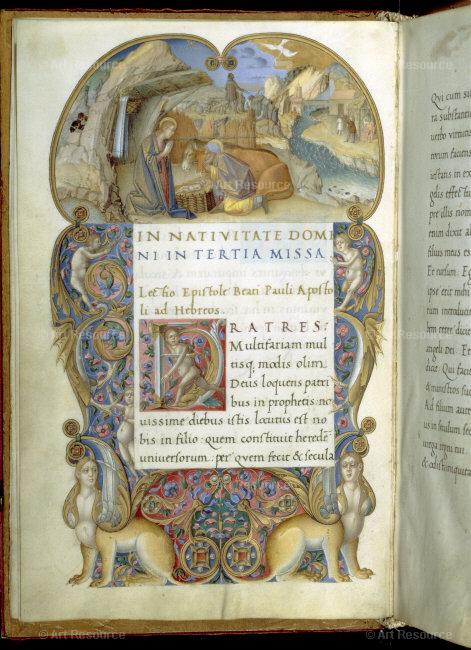 IN NATIVITATE DOMI
NI IN TERTIA MISSA
Lectio Epistole Beati Pauli Aposto
li ad Hebreos.
FRATRES:
Multifariam mul
tisq, modis olim
Deus loquens patri
bus in prophetis: no
vissime diebus istis locutus est no
bis in filio: quem constituit heredē
universorum: per quem fecit & secula
Qui cum su
ra substanti
verbo virtuti
torum faciens
iestatis in
gelis
pre illis
enim dixit
filius meus
Et rursum:
ipse erit mihi
rum
angeli dei: Et
dicit: Qui facit
& ministros suo
Ad filium autem
us in seculum sec
& odisti iniquitat
© Art Resource